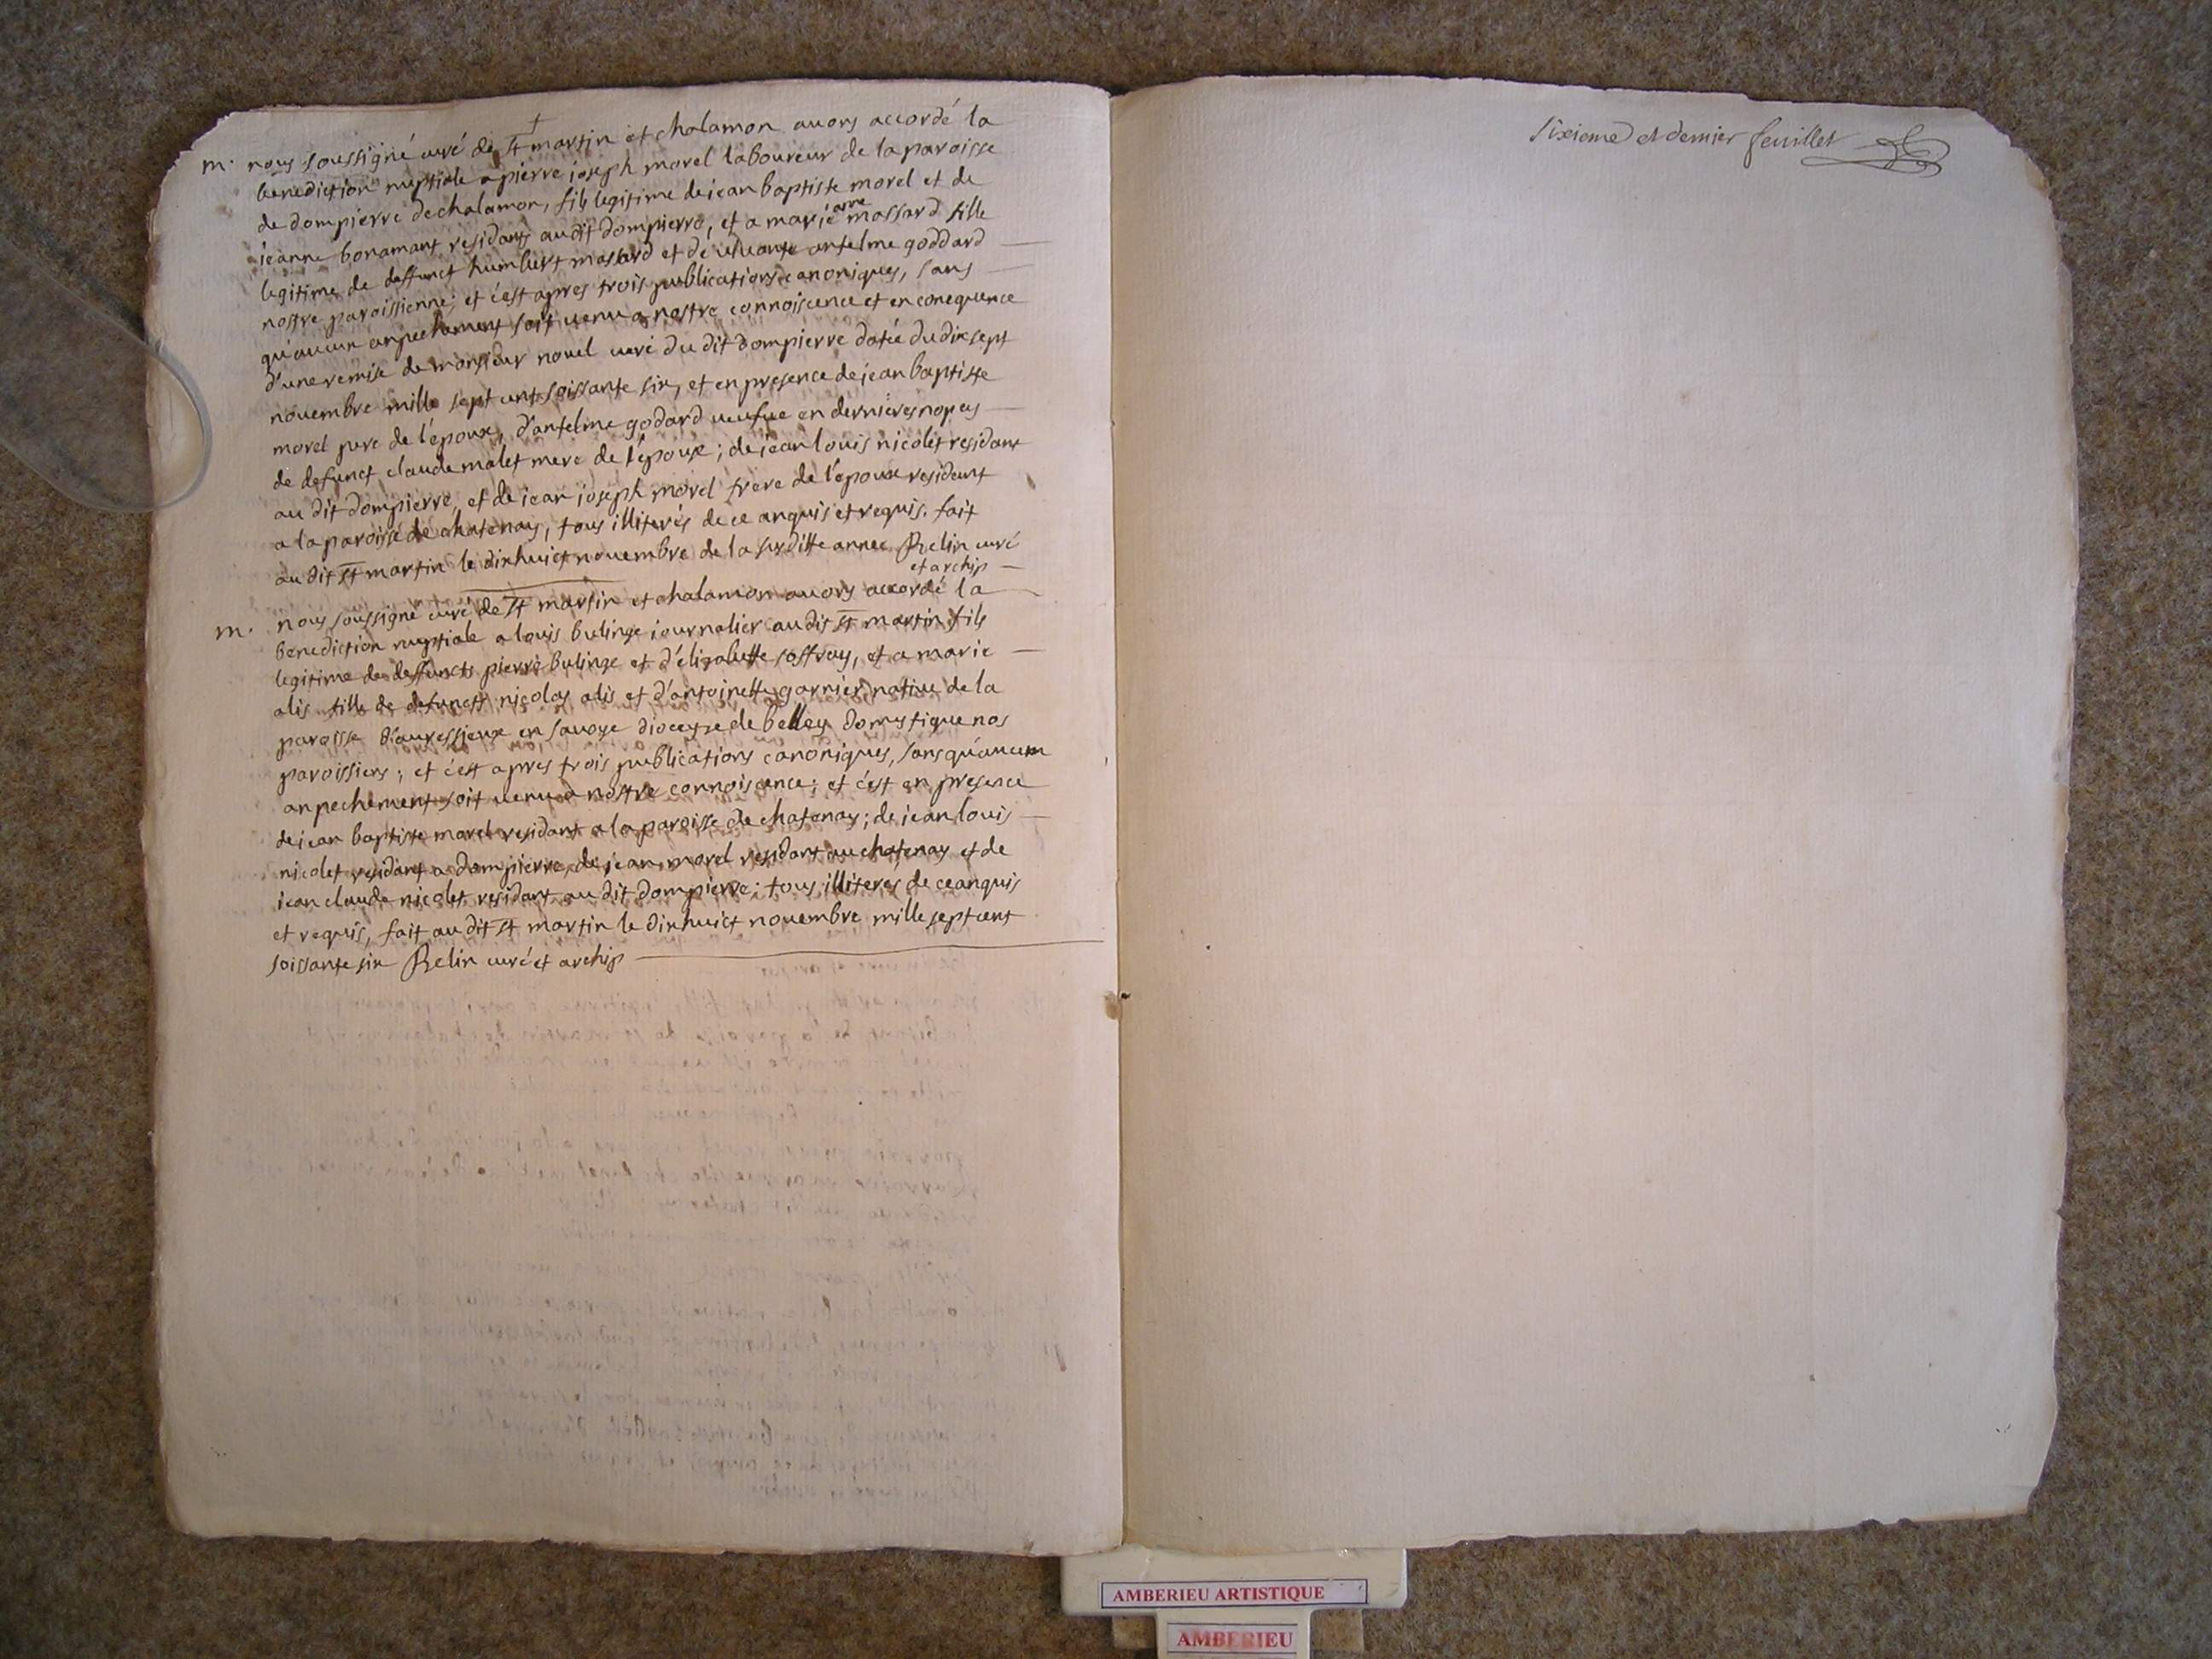 †
m. nous soussigné curé de st martin et chalamon avons accordé la
benediction nuptiale a pierre joseph morel laboureur de la paroisse
de dompierre de chalamon, fils legitime de jean baptiste morel et de
jeanne bonamant residants au dit dompierre, et a marie anne massard fille
legitime de deffunct humbert massard et de vivante antelme goddard
nostre paroissienne; et c'est apres trois publications canoniques, sans
qu'aucun anpechement soit venu a nostre connoiscence et en consequence
d'une remise de monsieur novel curé du dit dompierre datée du dix sept
novembre mille sept cent soissante six, et en presence de jean baptiste
morel pere de l'epoux, d'antelme godard veufve en dernieres nopces
de defunct claude malet mere de l'épouse; de jean louis nicolet residant
au dit dompierre, et de jean joseph morel frere de l'epoux resident
a la paroisse de chatenay, tous illiterés de ce anquis et requis. fait
au dit st martin le dixhuict novembre de la susditte annee Relin curé
et archip
m. nous soussigné curé de st martin et chalamon avons accordé la
benediction nuptiale a louis bulinge journalier au dit st martin fils
legitime de deffuncts pierre bulinge et d'élizabette soffray, et a marie
alis fille de defunct nicolas alis et d'antoinette garnier native de la
paroisse d'auressieux en savoye dioceyze de belley domestique nos
paroissiens; et c'est apres trois publications canoniques, sans qu'aucun
anpechement soit venu a nostre connoiscence; et c'est en presence
de jean baptiste morel residant a la paroisse de chatenay; de jean louis
nicolet residant a dompierre, de jean morel residant au chatenay et de
jean claude nicolet residant au dit dompierre; tous illiteres de ce anquis
et requis, fait au dit st martin le dixhuict novembre mille sept cent
soissante six Relin curé et archip
sixieme et dernier feuillet
AMBERIEU ARTISTIQUE
AMBERIEU